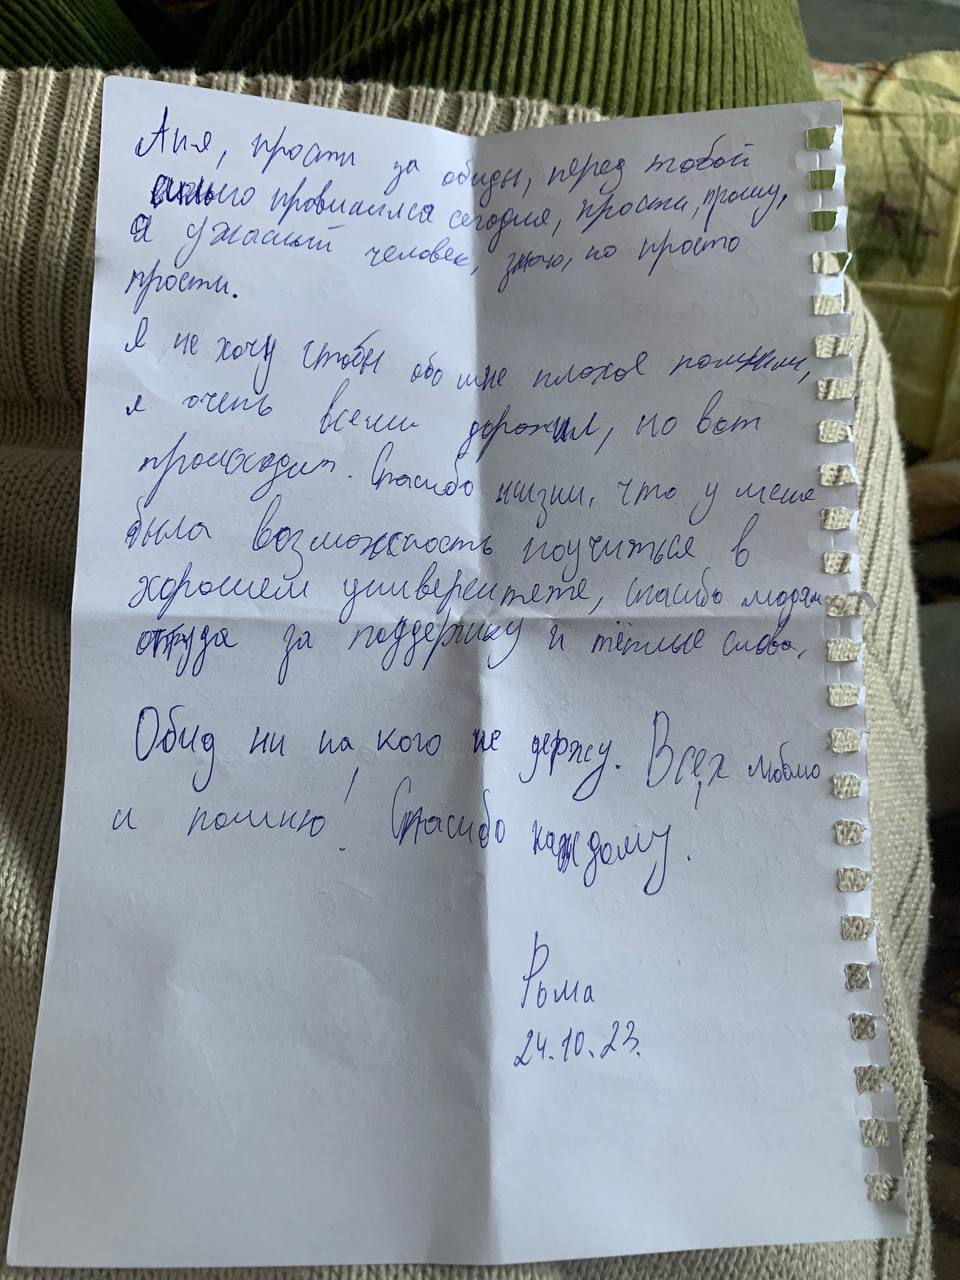 Аня, прости за обиды, перед тобой
сильно провинился сегодня, прости, прошу,
я ужасный человек, знаю, но просто
прости.
Я не хочу чтобы обо мне плохое помнили,
я очень всеми дорожил, но вот
происходит. Спасибо жизни, что у меня
была возможность поучиться в
хорошем университете, спасибо людям
оттуда за поддержку и тёплые слова.
Обид ни на кого не держу. Всех люблю
и помню! Спасибо каждому.
Рома
24.10.23.